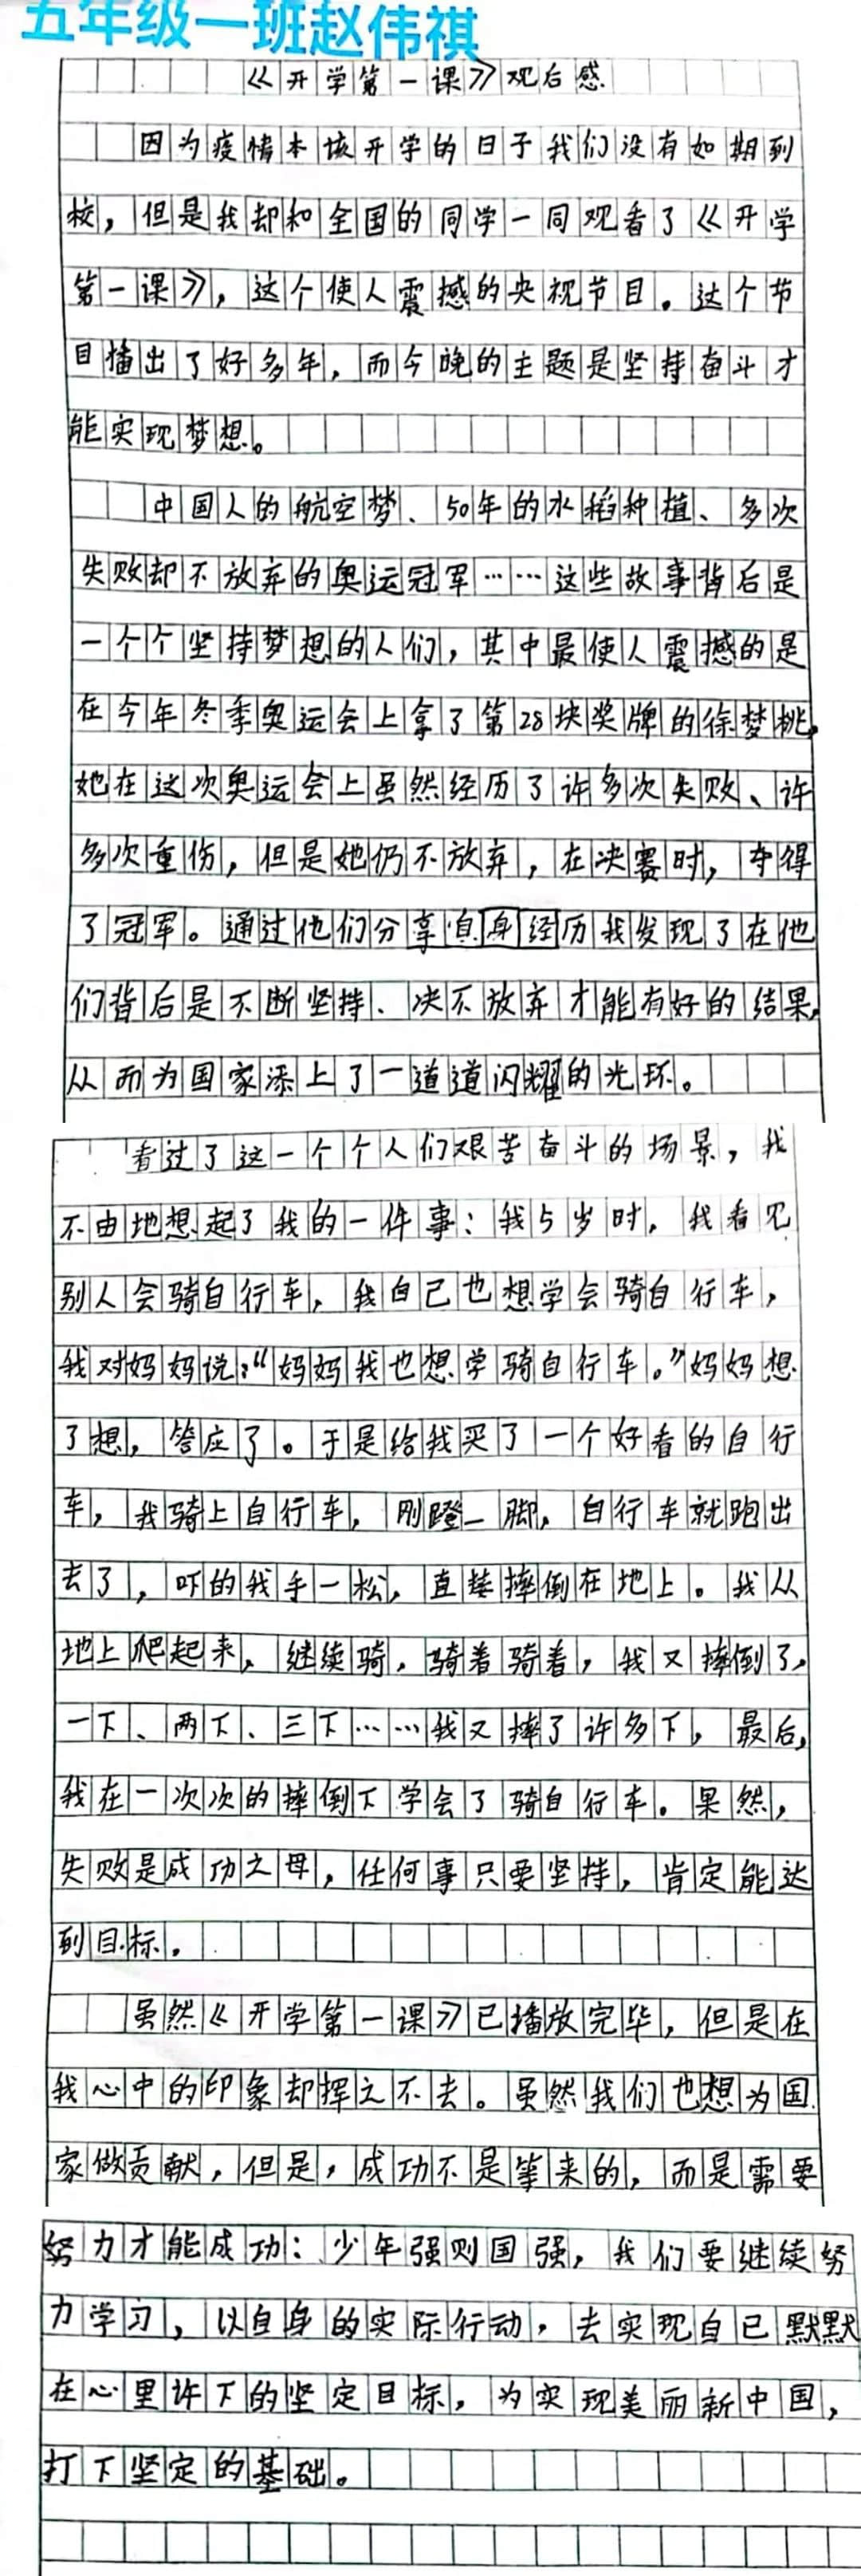 五年级一班赵伟祺
《开学第一课》观后感
因为疫情本该开学的日子我们没有如期到
校，但是我却和全国的同学一同观看了《开学
第一课》，这个使人震撼的央视节目。这个节
目播出了好多年，而今晚的主题是坚持奋斗才
能实现梦想。
中国人的航空梦、50年的水稻种植、多次
失败却不放弃的奥运冠军……这些故事背后是
一个个坚持梦想的人们，其中最使人震撼的是
在今年冬季奥运会上拿了第28块奖牌的徐梦桃，
她在这次奥运会上虽然经历了许多次失败、许
多次重伤，但是她仍不放弃，在决赛时，夺得
了冠军。通过他们分享自身经历我发现了在他
们背后是不断坚持、决不放弃才能有好的结果，
从而为国家添上了一道道闪耀的光环。
看过了这一个个人们艰苦奋斗的场景，我
不由地想起了我的一件事：我5岁时，我看见
别人会骑自行车，我自己也想学会骑自行车，
我对妈妈说：“妈妈我也想学骑自行车。”妈妈想
了想，答应了。于是给我买了一个好看的自行
车，我骑上自行车，刚蹬一脚，自行车就跑出
去了，吓的我手一松，直接摔倒在地上。我从
地上爬起来，继续骑，骑着骑着，我又摔倒了，
一下、两下、三下……我又摔了许多下，最后，
我在一次次的摔倒下学会了骑自行车。果然，
失败是成功之母，任何事只要坚持，肯定能达
到目标。
虽然《开学第一课》已播放完毕，但是在
我心中的印象却挥之不去。虽然我们也想为国
家做贡献，但是，成功不是等来的，而是需要
努力才能成功：少年强则国强，我们要继续努
力学习，以自身的实际行动，去实现自己默默
在心里许下的坚定目标，为实现美丽新中国，
打下坚定的基础。